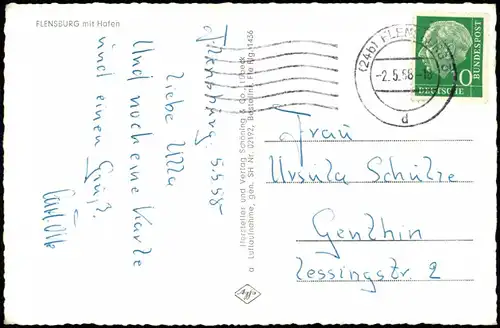 FLENSBURG mit Hafen
Flensburg, 5.5.58
Liebe Ulla
Und noch eine Karte
und einen Gruß.
Hersteller und Verlag Schöning & Co., Lübeck
a Luftaufnahme, gen. SH Nr. 02192, Bestell
1436
(24b) FLENSBURG
-2.5.58-18
d
DEUTSCHE BUNDESPOST
10
Frau
Ursula Schulze
Genthin
Lessingstr. 2